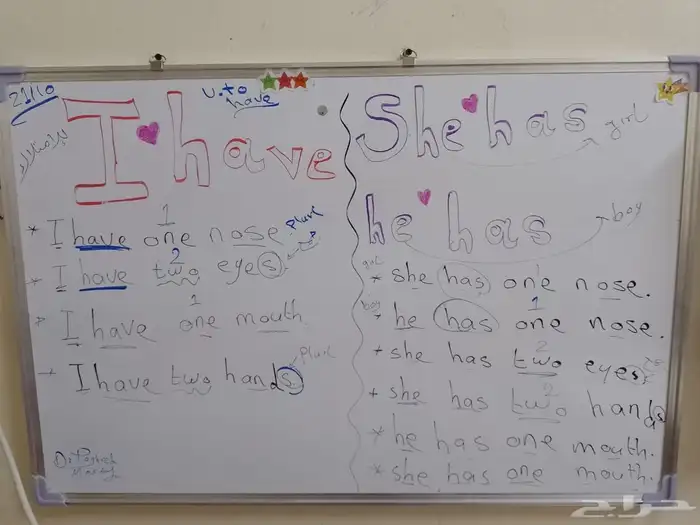 21/10
v. to have
I have
* I have one nose 1
plural
* I have two eyes 2
* I have one mouth 1
Plural
* I have two hands
She has girl
he has boy
girl
* she has one nose.
boy
* he has one nose. 1
* she has two eyes 2
* she has two hands 2
* he has one mouth.
* she has one mouth.
حراج